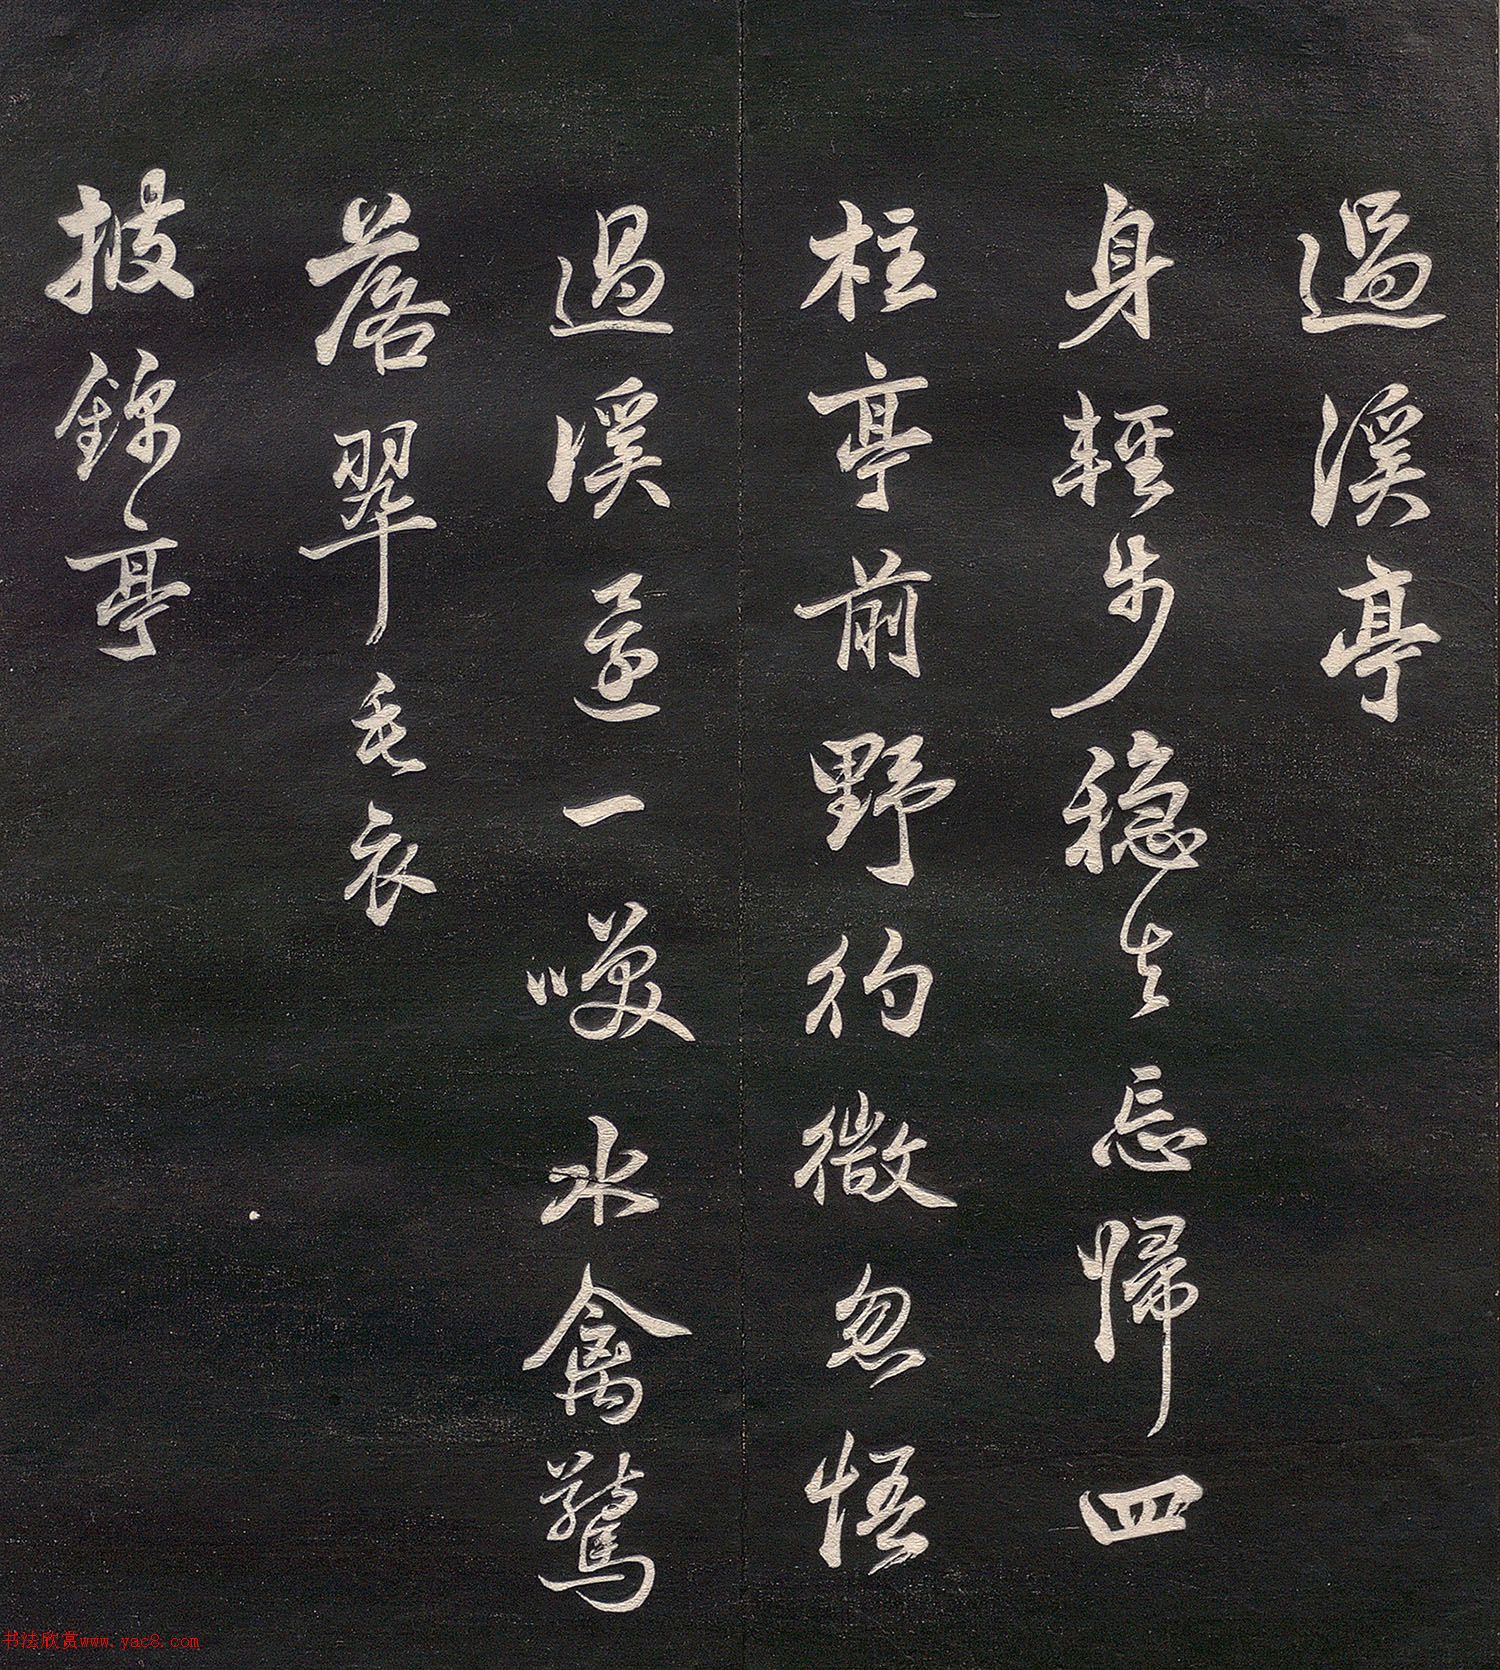 過溪亭
身輕步穩去忘歸四
柱亭前野彴微忽悟
過溪還一笑水禽驚
落翠毛衣
披錦亭
书法欣赏www.yac8.com